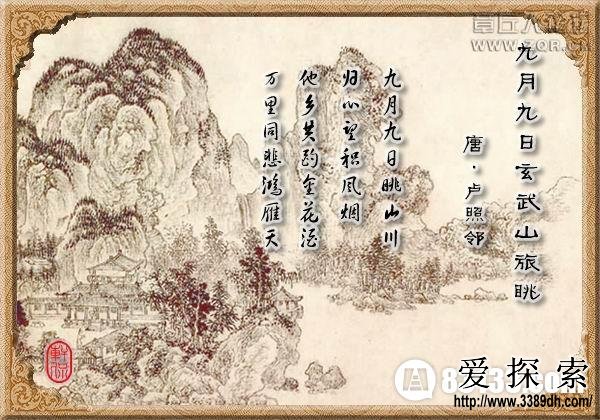 九月九日玄武山旅眺
唐·卢照邻
九月九日眺山川
归心望积风烟
他乡共酌金花酒
万里同悲鸿雁天
章丘人论坛
www.ZQR.CN
爱探索
http://www.3389dh.com/